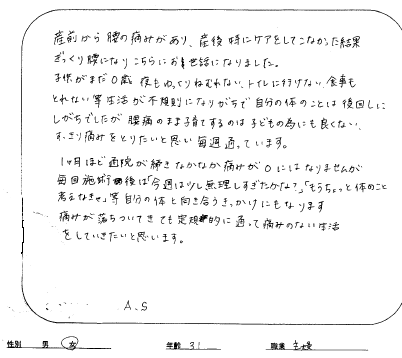 産前から腰の痛みがあり、産後特にケアをしてこなかった結果
ぎっくり腰になりこちらにお世話になりました。
子供がまだ0歳 夜もゆっくりねむれない、トイレに行けない、食事も
とれない等生活が不規則になりがちで自分の体のことは後回しに
しがちでしたが腰痛のまま子育てするのは子どもの為にも良くない、
すっきり痛みをとりたいと思い毎週通っています。
1ヶ月ほど通院が続きなかなか痛みが0にはなりませんが
毎回施術後は「今週は少し無理しすぎたかな?」「もうちょっと体のこと
考えなきゃ」等自分の体と向き合うきっかけにもなります
痛みが落ちついてきても定期的に通って痛みのない生活
をしていきたいと思います。
A.S
性別 男 女 年齢 31 職業 主婦